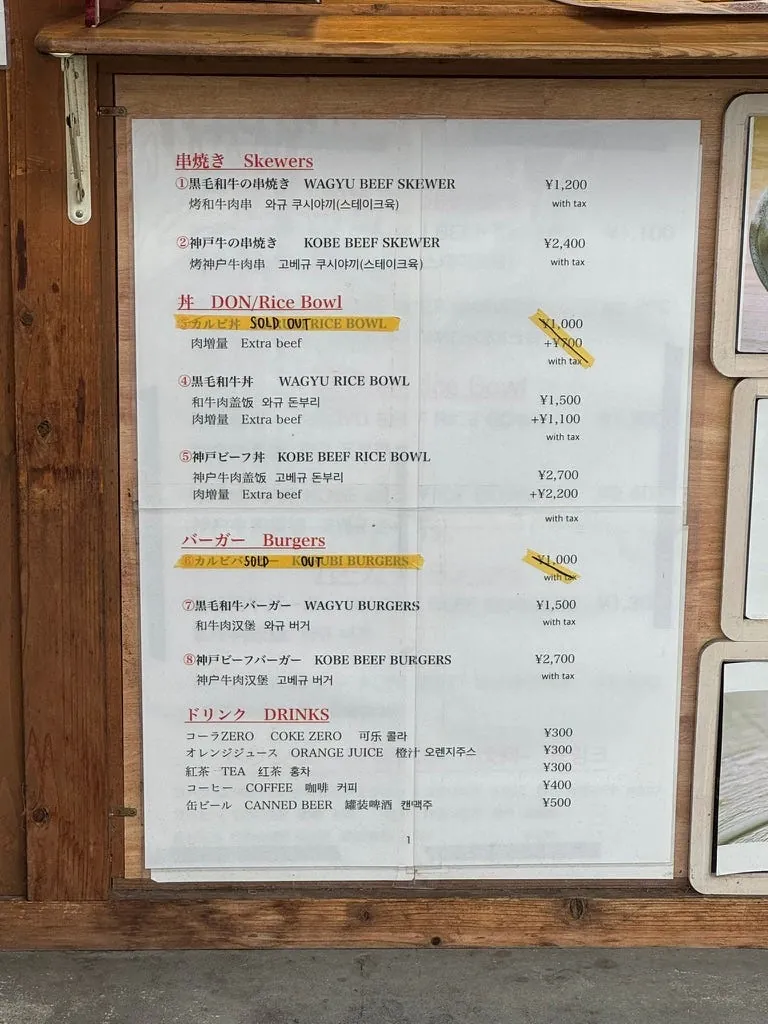 串焼き Skewers
①黒毛和牛の串焼き WAGYU BEEF SKEWER ¥1,200
烤和牛肉串 와규 쿠시야끼(스테이크육) with tax
②神戸牛の串焼き KOBE BEEF SKEWER ¥2,400
烤神户牛肉串 고베규 쿠시야끼(스테이크육) with tax
丼 DON/Rice Bowl
カルビ丼 SOLD OUT RICE BOWL ¥1,000
肉増量 Extra beef +¥700
with tax
④黒毛和牛丼 WAGYU RICE BOWL
和牛肉盖饭 와규 돈부리 ¥1,500
肉増量 Extra beef +¥1,100
with tax
⑤神戸ビーフ丼 KOBE BEEF RICE BOWL
神户牛肉盖饭 고베규 돈부리 ¥2,700
肉増量 Extra beef +¥2,200
with tax
バーガー Burgers
⑥カルビバ SOLD ー OUT UBI BURGERS ¥1,000
with tax
⑦黒毛和牛バーガー WAGYU BURGERS ¥1,500
和牛肉汉堡 와규 버거 with tax
⑧神戸ビーフバーガー KOBE BEEF BURGERS ¥2,700
神户牛肉汉堡 고베규 버거 with tax
ドリンク DRINKS
コーラZERO COKE ZERO 可乐 콜라 ¥300
オレンジジュース ORANGE JUICE 橙汁 오렌지주스 ¥300
紅茶 TEA 红茶 홍차 ¥300
コーヒー COFFEE 咖啡 커피 ¥400
缶ビール CANNED BEER 罐装啤酒 캔맥주 ¥500
1